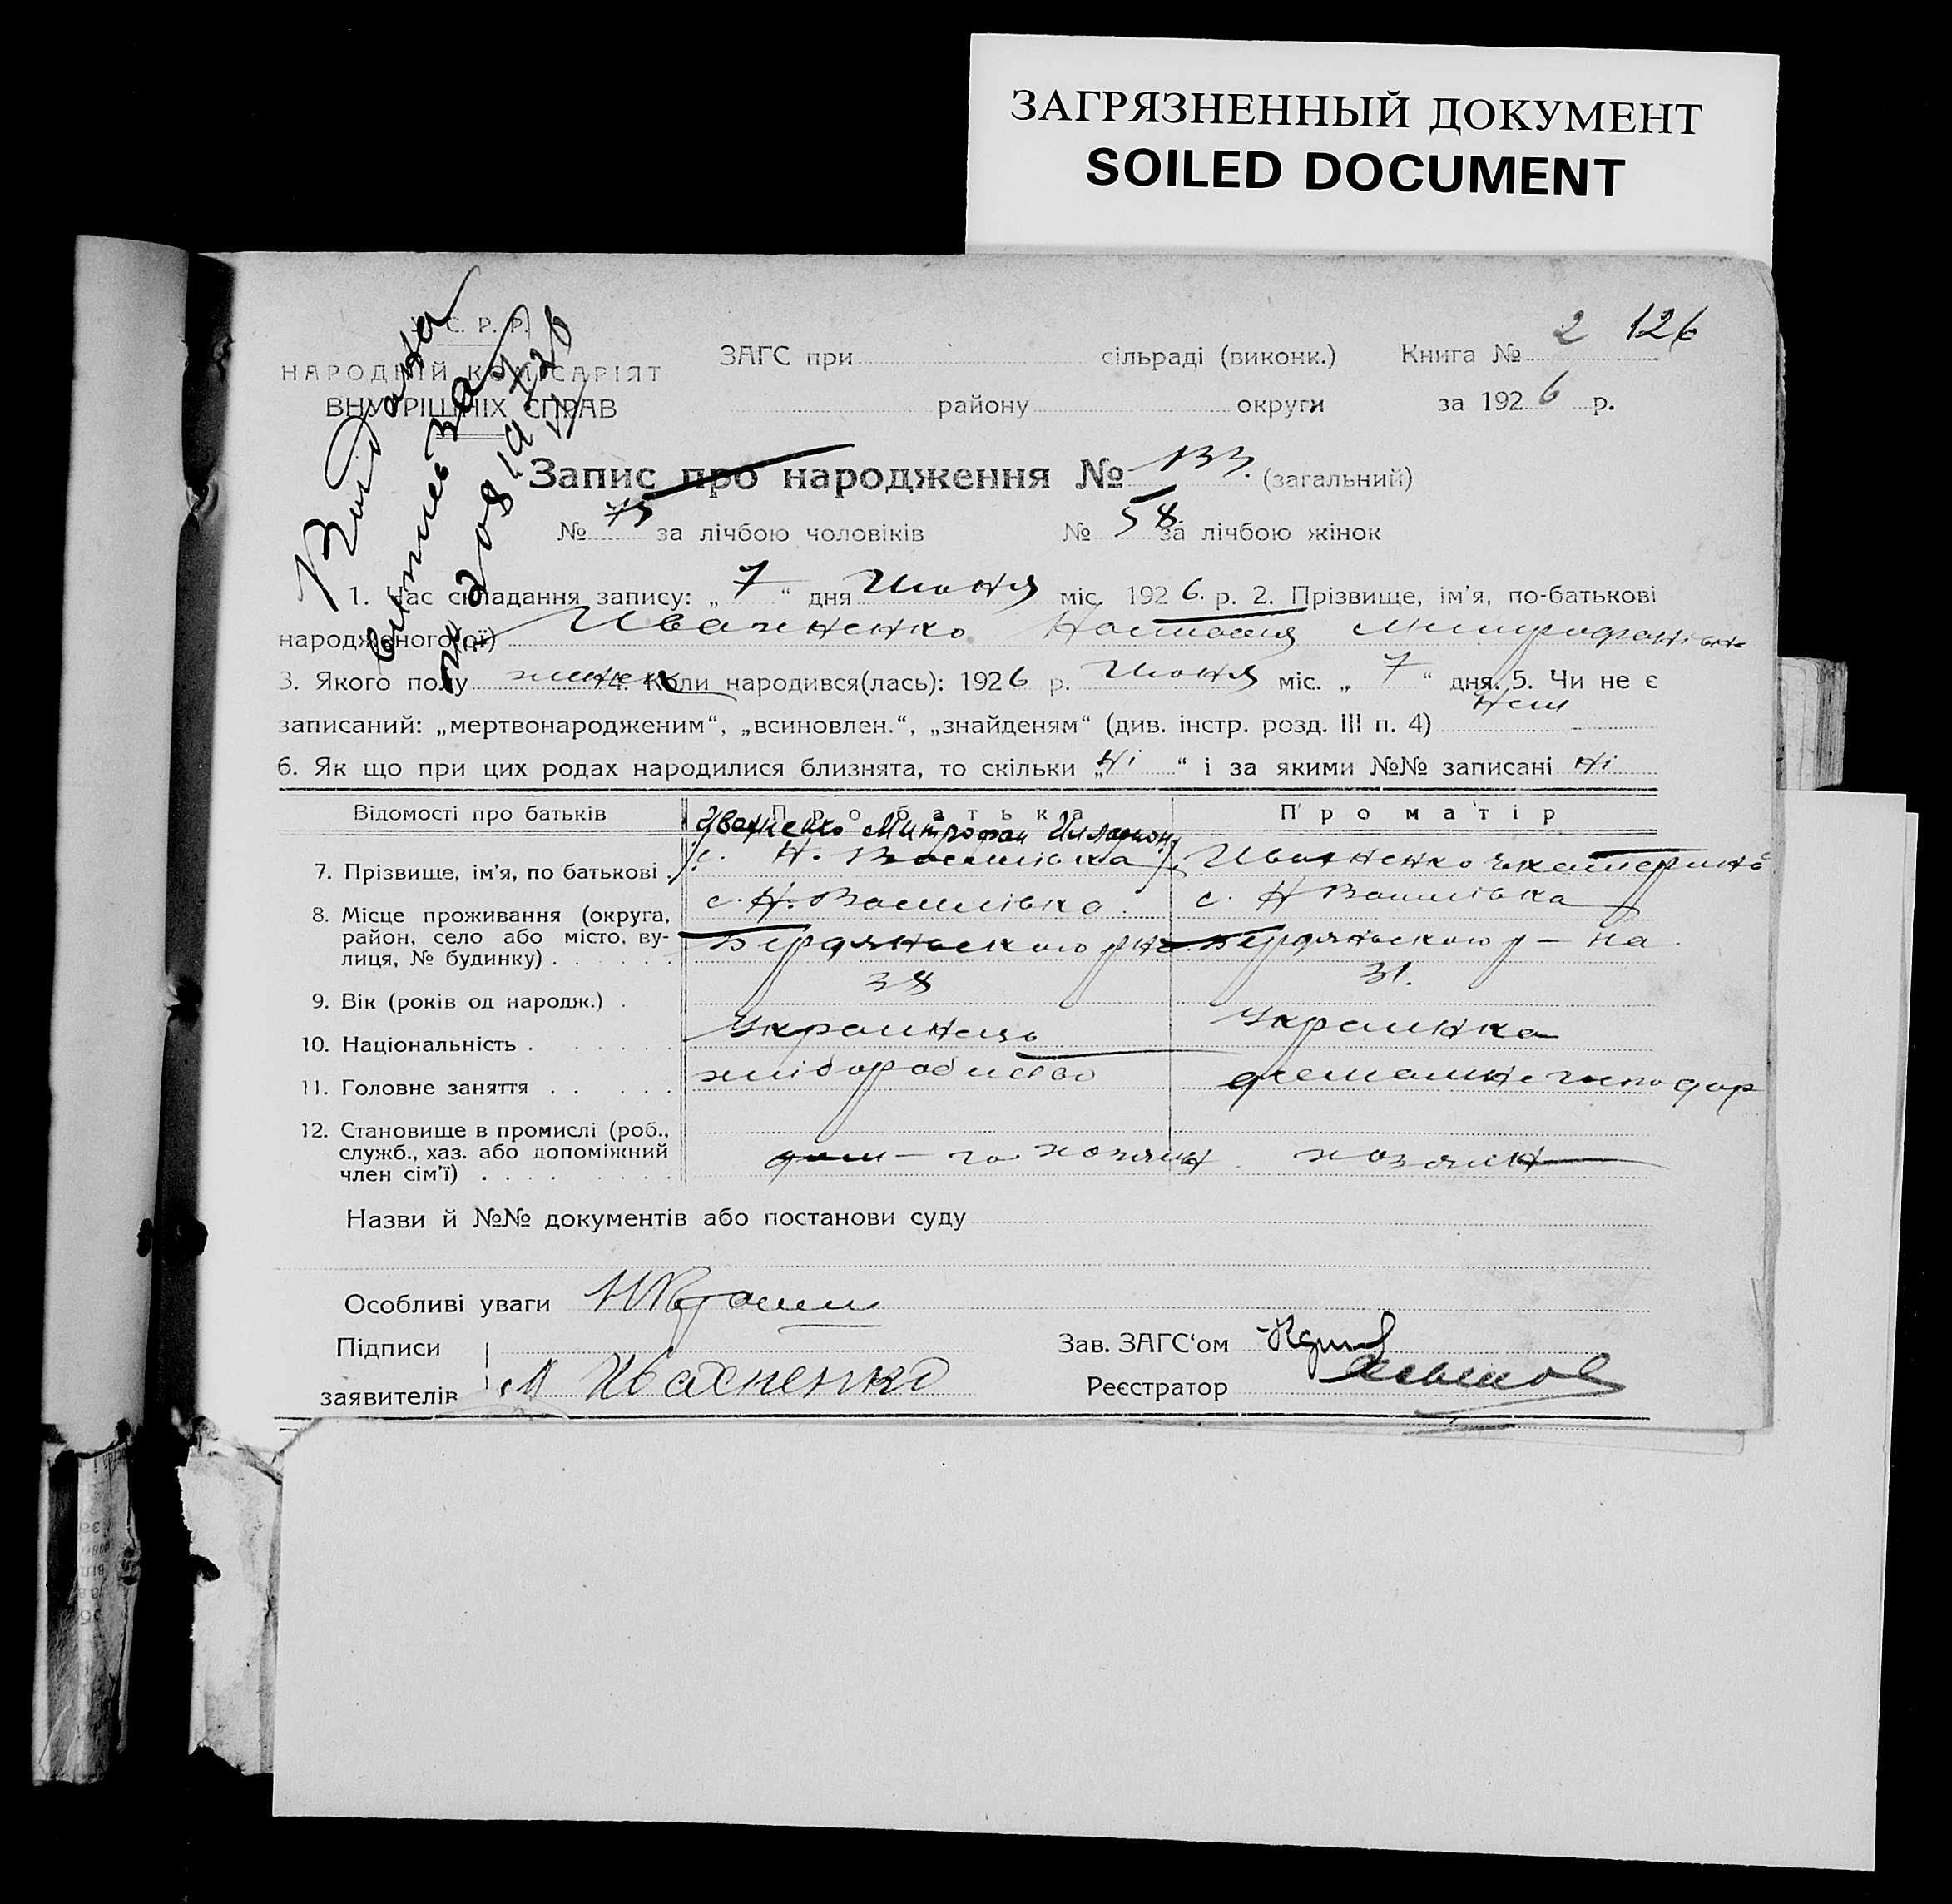 ЗАГРЯЗНЕННЫЙ ДОКУМЕНТ
SOILED DOCUMENT
2 126
С. Р. Р.
НАРОДНІЙ КОМІСАРІЯТ
ВНУТРІШНІХ СПРАВ
ЗАГС при сільраді (виконк.) Книга №
району округи за 1926 р.
Запис про народження № 133. (загальний)
№ 75 за лічбою чоловіків № 58 за лічбою жінок
1. Час складання запису: „7“ дня Июня міс. 1926. р. 2. Прізвище, ім’я, по-батькові
народженого(ої) Ивахненко Настасия
3. Якого полу 4. Коли народився(лась): 1926 р. Июня міс. „7“ дня. 5. Чи не є
записаний: „мертвонародженим“, „всиновлен.“, „знайденям“ (див. інстр. розд. III п. 4)
6. Як що при цих родах народилися близнята, то скільки „Ні“ і за якими №№ записані Ні
Відомості про батьків Про батька Про матір
Ивахненко Митрофан
7. Прізвище, ім’я, по батькові с. Н. Василівка Ивахненко Екатерина
8. Місце проживання (округа, район, село або місто, вулиця, № будинку) с. Н. Василівка с. Н Василівка
Бердянського р-на Бердянського р-на
9. Вік (років од народж.) 38 31.
10. Національність Украинець Украинка
11. Головне заняття хліборобство
12. Становище в промислі (роб., служб., хаз. або допоміжний член сім’ї) хозяин
Назви й №№ документів або постанови суду
Особливі уваги
Підписи Зав. ЗАГС‘ом
заявителів М Ивахненко Реєстратор